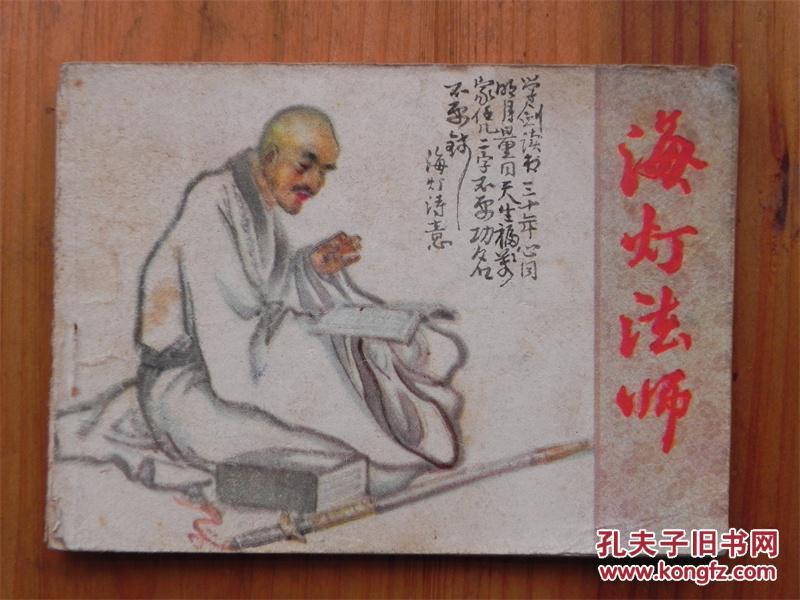 海灯法师
学剑读书三十年心同
明月量同天生福
家伍凡二字不要功名仅
不要钱
海灯诗意
孔夫子旧书网
www.kongfz.com